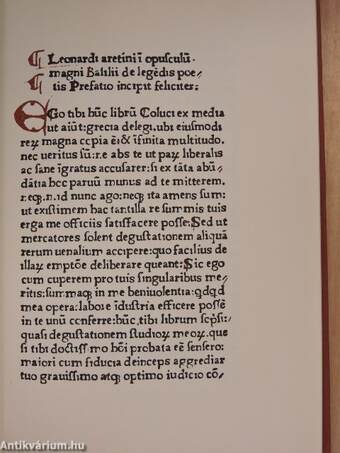 ¶ Leonardi aretini ī opusculū.
¶ magni Basilii de legēdis poe⸗
tis Prefatio incipit feliciter:
EGo tibi hūc librū Coluci ex media
ut aiūt: grecia delegi. ubi eiusmodi
reꝝ magna copia ē: & īfinita multitudo.
nec ueritus sū: ne abs te ut paꝝ liberalis
ac sane īgratus accusarer: si ex tāta abū⸗
dātia hoc paruū munus ad te mitterem.
neqꝫ. n. id nunc ago: neqꝫ ita amens sum:
ut existimem hac tantilla re summis tuis
erga me officiis satisfacere posse: Sed ut
mercatores solent degustationem aliquā
rerum uenalium accipere: quo facilius de
illaꝝ emptōe deliberare queant: Sic ego
cum cuperem pro tuis singularibus me⸗
ritis: summaqꝫ in me beniuolentia: qdqd
mea opera: labore īdustria efficere possē
in te unū conferre: hūc tibi librum scp̄si:
quasi degustationem studii meoꝝ. quę
si tibi doctissimo hōi probata eē sensero:
maiori cum fiducia deinceps aggrediar
tuo grauissimo atqꝫ optimo iudicio cō⸗
Antikvárium.hu